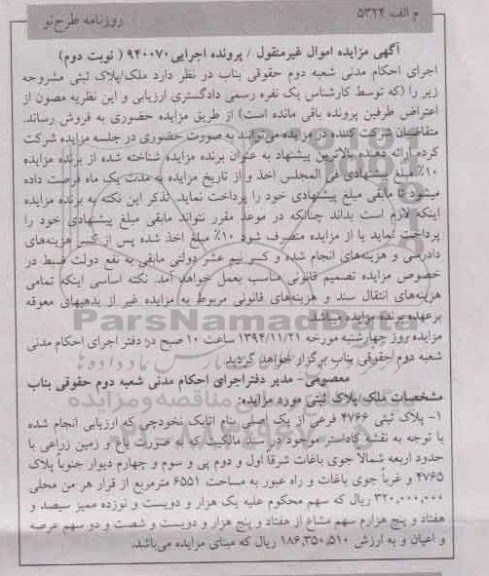 م الف ۵۳۲۴ روزنامه طرح‌نو
آگهی مزایده اموال غیرمنقول / پرونده اجرایی ۹۴۰۰۷۰ ( نوبت دوم)
اجرای احکام مدنی شعبه دوم حقوقی بناب در نظر دارد ملک/پلاک ثبتی مشروحه
زیر را (که توسط کارشناس یک نفره رسمی دادگستری ارزیابی و این نظریه مصون از
اعتراض طرفین پرونده باقی مانده است) از طریق مزایده حضوری به فروش رساند.
متقاضیان شرکت کننده در مزایده می‌توانند به صورت حضوری در جلسه مزایده شرکت
کرده ارائه دهنده بالاترین پیشنهاد به عنوان برنده مزایده شناخته شده از برنده مزایده
۱۰٪ مبلغ پیشنهادی فی المجلس اخذ و از تاریخ مزایده به مدت یک ماه فرصت داده
میشود تا مابقی مبلغ پیشنهادی خود را پرداخت نماید. تذکر این نکته به برنده مزایده
اینکه لازم است بداند چنانکه در موعد مقرر نتواند مابقی مبلغ پیشنهادی خود را
پرداخت نماید یا از مزایده منصرف شود ۱۰٪ مبلغ اخذ شده پس از کسر هزینه‌های
دادرسی و هزینه‌های انجام شده و کسر نیم عشر دولتی مابقی به نفع دولت ضبط در
خصوص مزایده تصمیم قانونی مناسب بعمل خواهد آمد. نکته اساسی اینکه تمامی
هزینه‌های انتقال سند و هزینه‌های قانونی مربوط به مزایده غیر از بدهیهای معوقه
برعهده برنده مزایده میباشد.
مزایده روز چهارشنبه مورخه ۱۳۹۴/۱۱/۲۱ ساعت ۱۰ صبح در دفتر اجرای احکام مدنی
شعبه دوم حقوقی بناب برگزار خواهد گردید.
معصومی- مدیر دفتراجرای احکام مدنی شعبه دوم حقوقی بناب
مشخصات ملک /پلاک ثبتی مورد مزایده:
۱- پلاک ثبتی ۴۷۶۶ فرعی از یک اصلی بنام اتابک نخودچی که ارزیابی انجام شده
با توجه به نقشه کاداستر موجود در سند مالکیت به صورت باغ و زمین زراعی با
حدود اربعه شمالاً جوی باغات شرقاً اول و دوم پی و سوم و چهارم دیوار جنوباً پلاک
۴۷۶۵ و غرباً جوی باغات و راه عبور به مساحت ۶۵۵۱ مترمربع از قرار هر من محلی
۳۲۰٫۰۰۰٫۰۰۰ ریال که سهم محکوم علیه یک هزار و دویست و نوزده ممیز سیصد و
هفتاد و پنج هزارم سهم مشاع از هفتاد و پنج هزار و دویست و شصت و دو سهم عرصه
و اعیان و به ارزش ۱۸۶٫۳۵۰٫۵۱۰ ریال که مبنای مزایده می‌باشد.
ParsNamadData